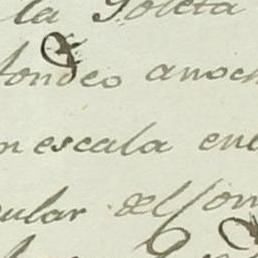 la Goleta
fondeo anoch
n escala en
cular del Com